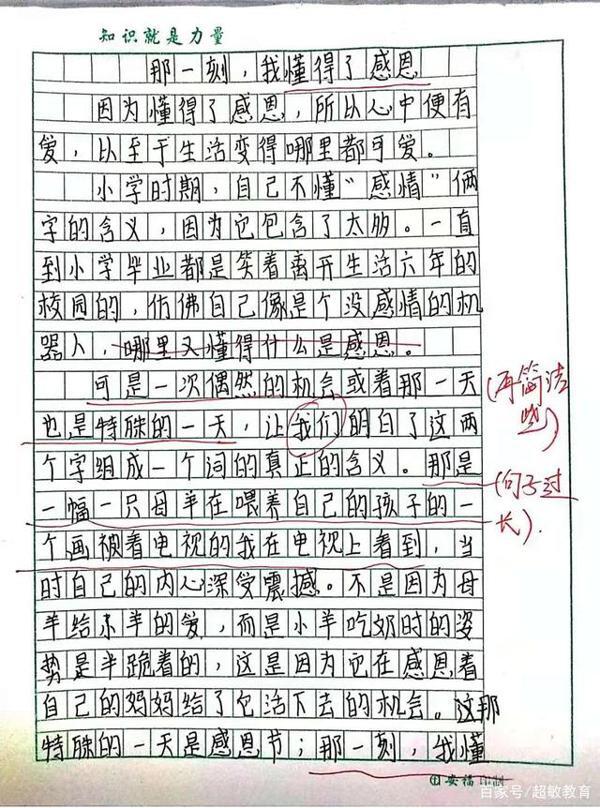 知识就是力量
那一刻，我懂得了感恩
因为懂得了感恩，所以心中便有
爱，以至于生活变得哪里都可爱。
小学时期，自己不懂“感情”俩
字的含义，因为它包含了太多。一直
到小学毕业都是笑着离开生活六年的
校园的，仿佛自己像是个没感情的机
器人，哪里又懂得什么是感恩。
可是一次偶然的机会或着那一天
也是特殊的一天，让我们明白了这两
个字组成一个词的真正的含义。那是
一幅一只母羊在喂养自己的孩子的一
个画被看电视的我在电视上看到，当
时自己的内心深受震撼。不是因为母
羊给小羊的爱，而是小羊吃奶时的姿
势是半跪着的，这是因为它在感恩着
自己的妈妈给了它活下去的机会。这那
特殊的一天是感恩节；那一刻，我懂
(再简洁
些)
(句子过
长).
百家号/超敏教育